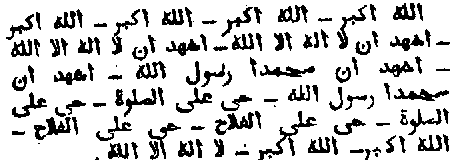 الله اكبر – الله اكبر – الله اكبر – الله اكبر
– اشهد ان لا اله الا الله – اشهد ان لا اله الا الله
– اشهد ان محمدا رسول الله – اشهد ان
محمدا رسول الله – حي على الصلوة – حي على
الصلوة – حي على الفلاح – حي على الفلاح –
الله اكبر – الله اكبر – لا اله الا الله .